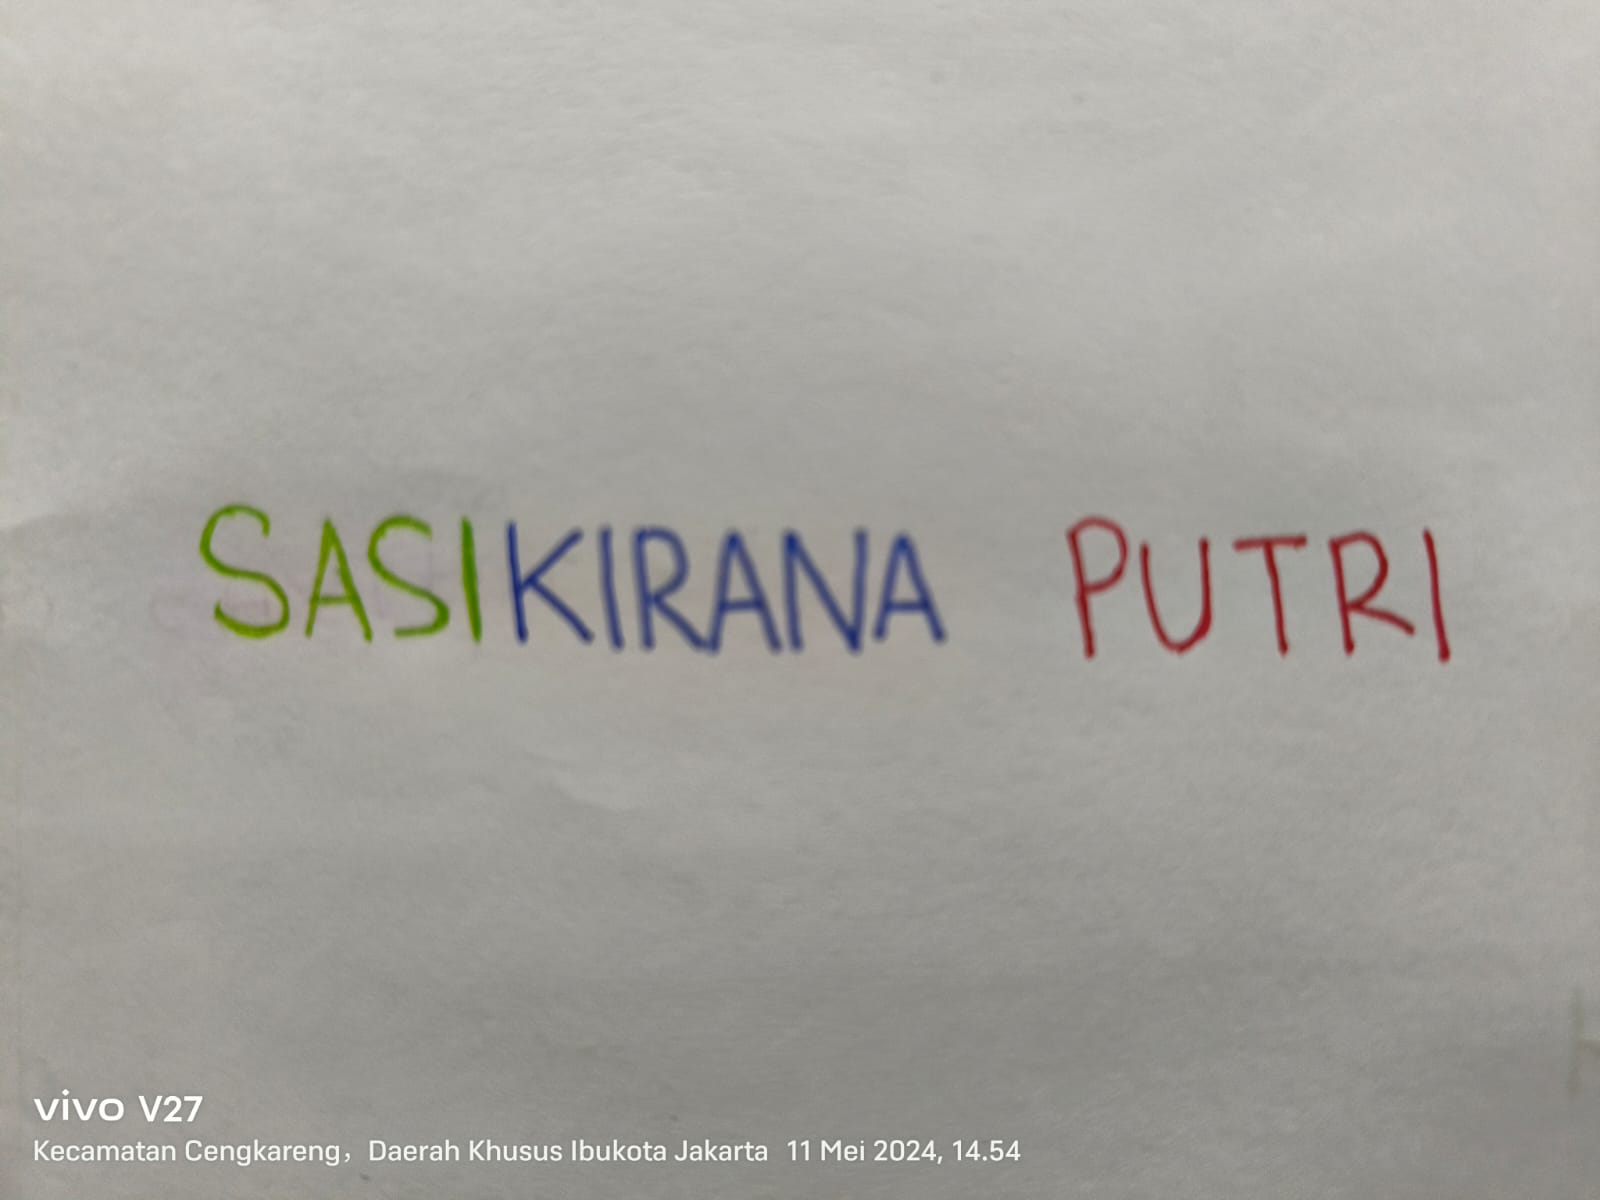 SASIKIRANA PUTRI
vivo V27
Kecamatan Cengkareng, Daerah Khusus Ibukota Jakarta 11 Mei 2024, 14.54